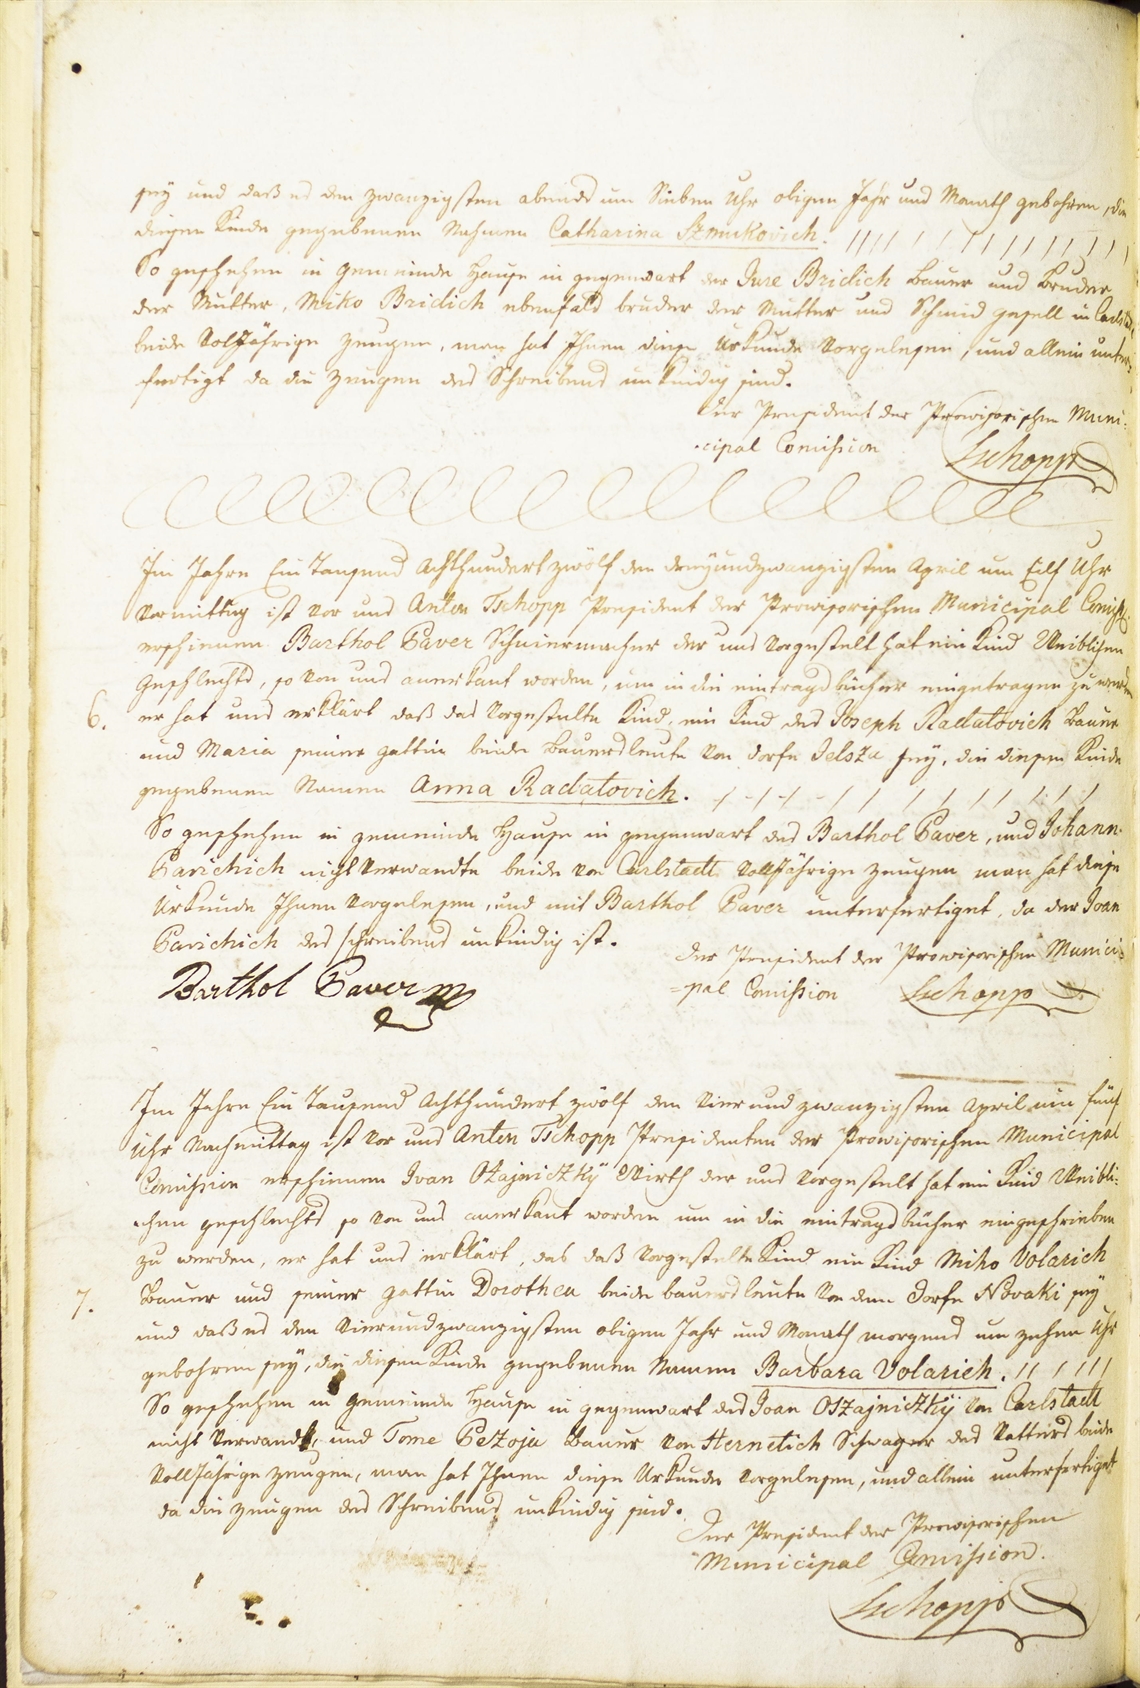 seÿ und daß es den zwanzigsten abends um Sieben Uhr obigen Jahr und Monath gebohren, die
diesen Kinde gegebenen Nahmen Catharina Szmukovich.
So geschehen in gemeinde Hause in gegenwart der Jure Bridich Bauer und Bruder
der Mutter, Miko Bridich ebenfals bruder der Mutter und Schmid gesell in
beide Volljährige Zeugen, man hat Ihnen diese Urkunde Vorgelesen, und allein unter=
fertigt da die Zeugen des Schreibens unkündig sind.
der President der Prowisorischen Muni=
=cipal Comission Tschopp
Im Jahre Ein Tausend Achthundert zwölf den dreÿundzwanzigsten April um Eilf Uhr
Vormittag ist vor uns Anton Tschopp President der Prowisorischen Municipal
erschienen Barthol Paver der uns Vorgestelt hat ein Kind Weiblichen
Geschlechts, so von uns anerkant worden, um in die eintragsbücher eingetragen zu werden
6. er hat uns erklärt daß das Vorgestelte Kind, ein Kind des Joseph Radatovich Bauer
und Maria seiner gattin beide Bauersleute von dorfe Jelsza seÿ, die diesen Kinde
gegebenen Namen Anna Radatovich.
So geschehen in gemeinde Hause in gegenwart des Barthol Paver, und Johann
Pavichich nicht Verwandte beide von Carlstadt Volljährige Zeugen man hat diese
Urkunde Ihnen Vorgelesen, und mit Barthol Paver unterfertiget, da der Joan
Pavichich des schreibens unkündig ist.
der President der Prowisorischen Munici=
Barthol Paver
=pal Comission Tschopp
Im Jahre Ein Tausend Achthundert zwölf den Vier und zwanzigsten April um fünf
Uhr Nachmittag ist vor uns Anton Tschopp Presidenten der Prowisorischen Municipal
Comission erschienen Ivan Oszajniczkÿ Wirth der uns Vorgestelt hat ein Kind Weibli=
=chen geschlechts so von uns anerkant worden um in die eintragsbücher eingeschrieben
zu werden, er hat uns erklärt, das daß Vorgestelte Kind ein Kind Miho Volarich
7. Bauer und seiner gattin Dorothea beide bauersleute von dem Dorfe Novaki seÿ
und daß es den Vierundzwanzigsten obigen Jahr und Monath morgens um zehen Uhr
gebohren seÿ, die diesen Kinde gegebenen Namen Barbara Volarich.
So geschehen in gemeinde Hause in gegenwart des Joan Oszajniczkÿ von Carlstadt
nicht Verwandt, und Tome Pezoja Bauer von Hernetich Schwager des Vatters beide
Volljährige Zeugen, man hat Ihnen diese Urkunde Vorgelesen, und allein unterfertiget
da die Zeugen des Schreibens unkündig sind.
Der President der Prowisorischen
Municipal Comission.
Tschopp